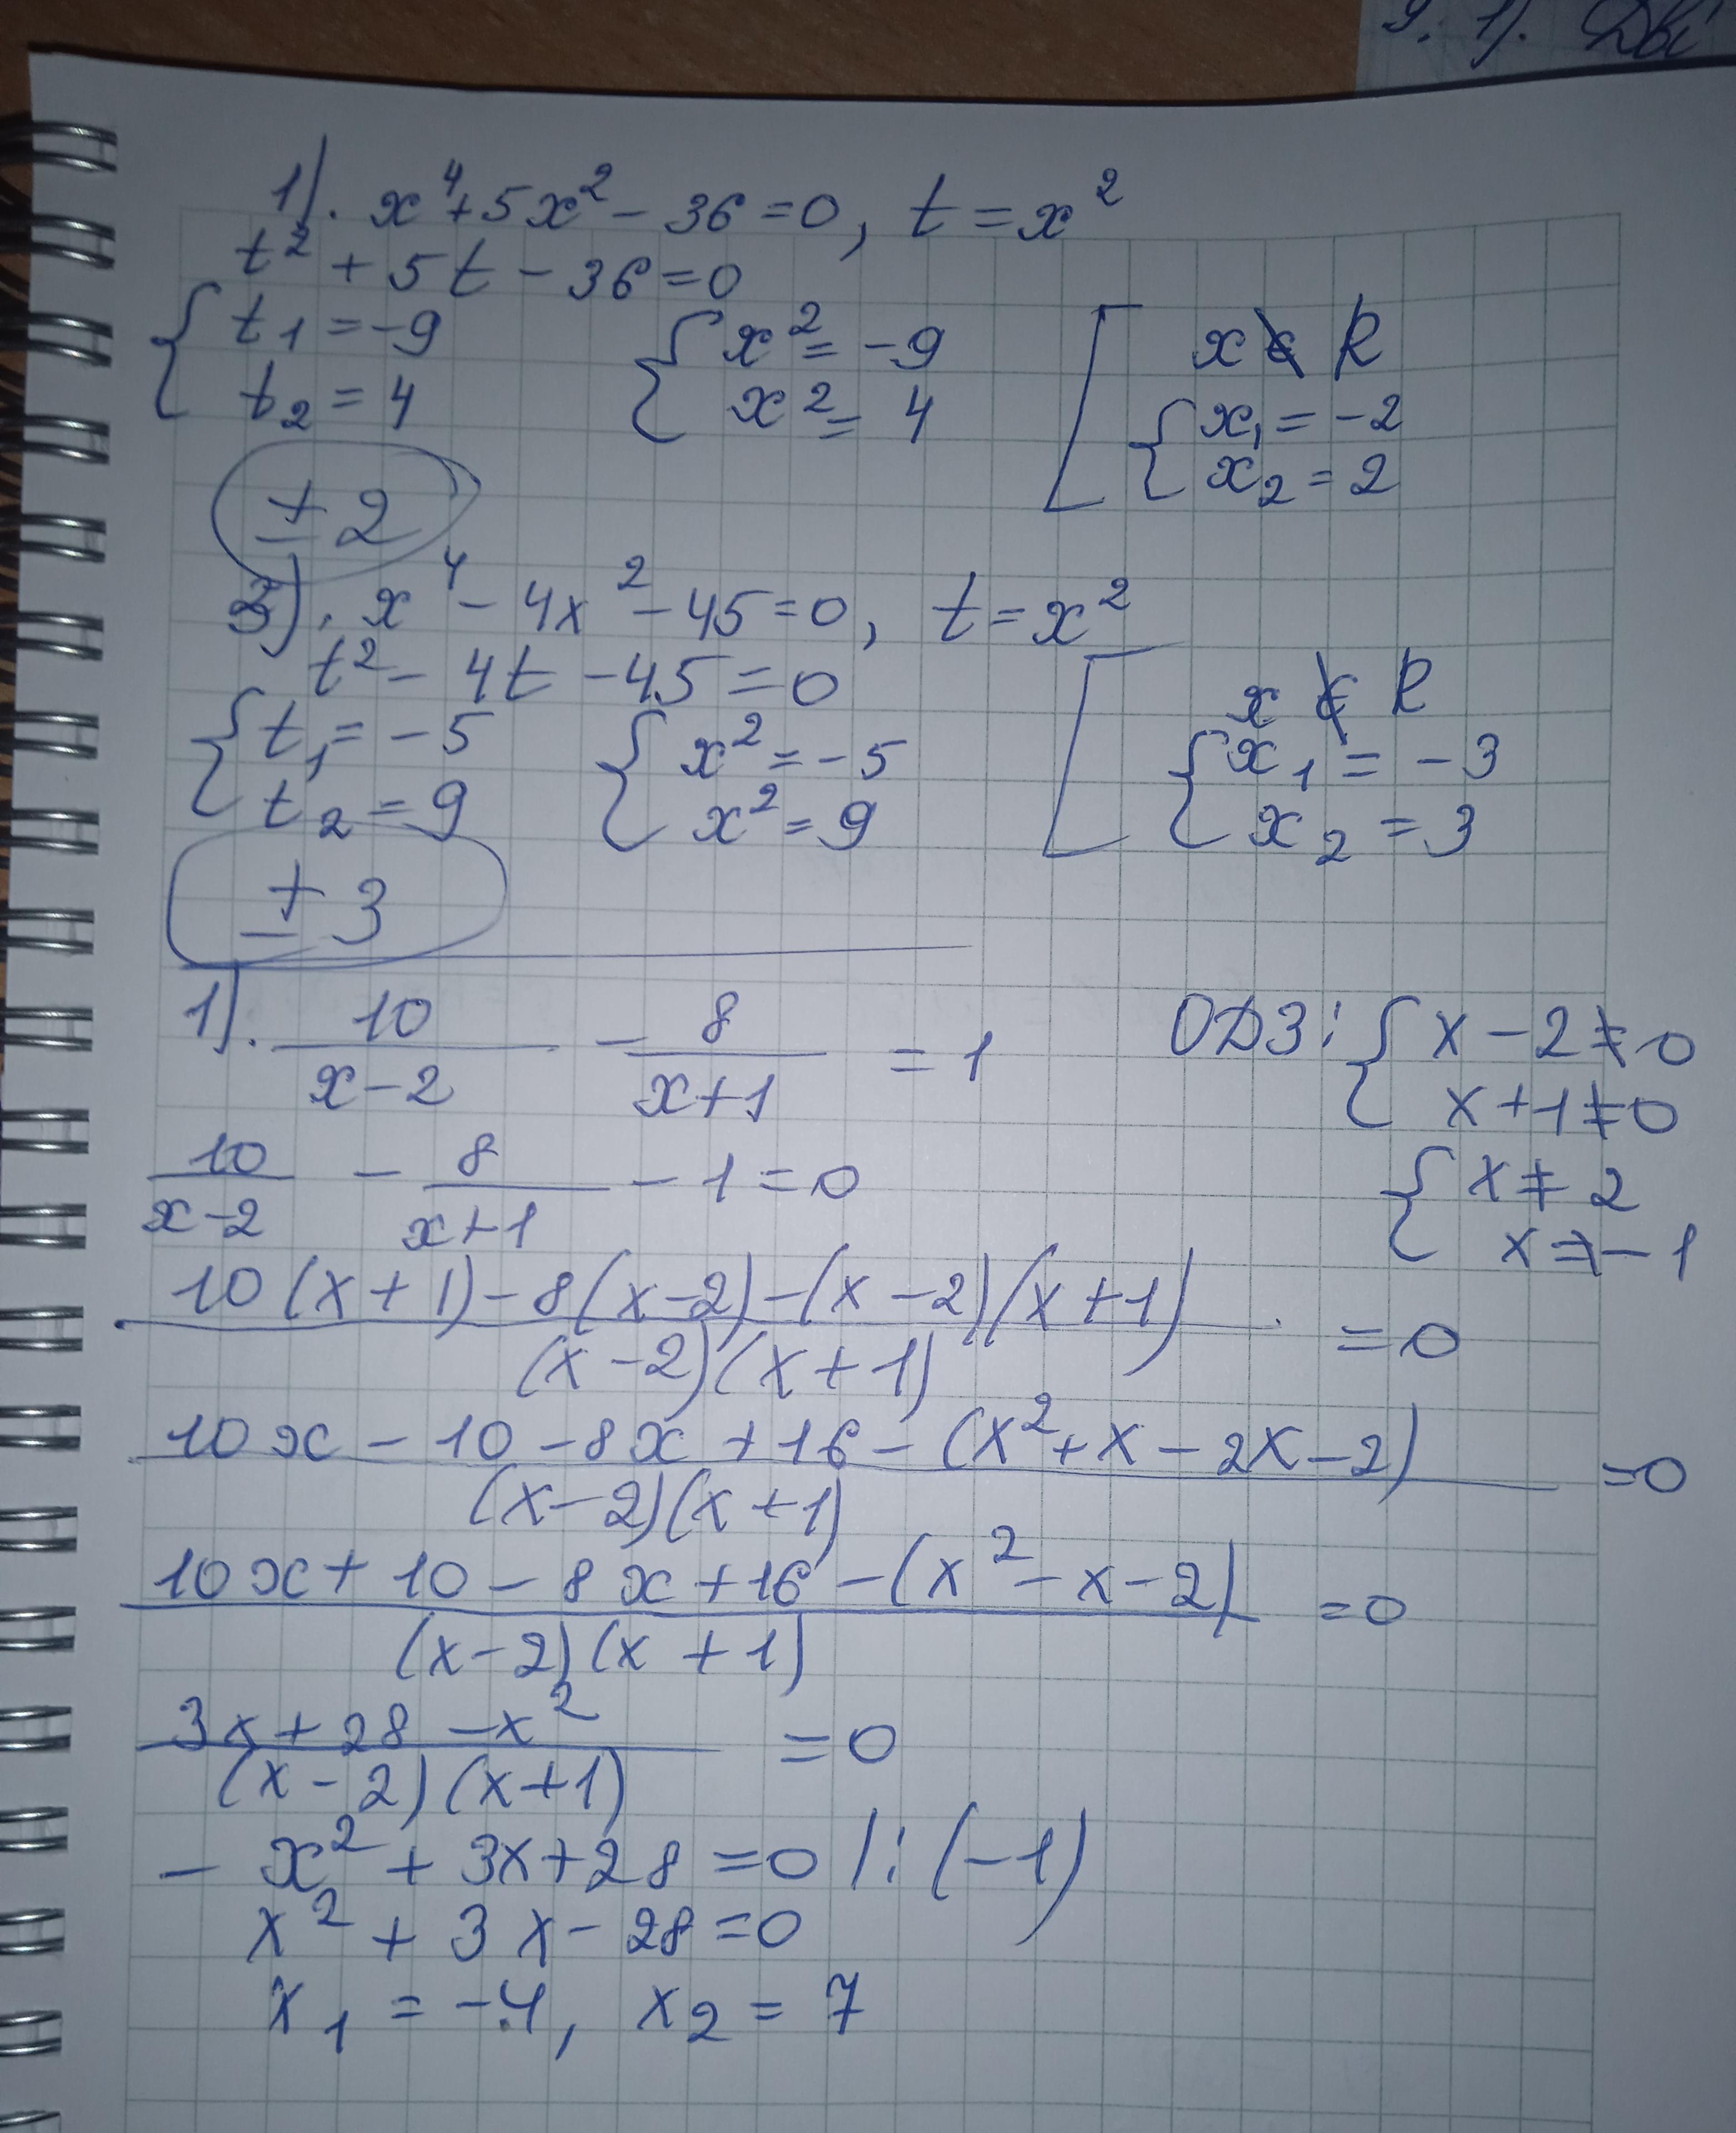 9. 1). Дві
1). x⁴ + 5x² - 36 = 0, t = x²
t² + 5t - 36 = 0
{ t₁ = -9 { x² = -9 [ x ∉ R
t₂ = 4 x² = 4 { x₁ = -2
x₂ = 2
± 2
3). x⁴ - 4x² - 45 = 0, t = x²
t² - 4t - 45 = 0
{ t₁ = -5 { x² = -5 [ x ∉ R
t₂ = 9 x² = 9 { x₁ = -3
x₂ = 3
± 3
1). 10/(x-2) - 8/(x+1) = 1 ОДЗ: { x - 2 ≠ 0
x + 1 ≠ 0
10/(x-2) - 8/(x+1) - 1 = 0 { x ≠ 2
x ≠ -1
(10(x+1) - 8(x-2) - (x-2)(x+1))/((x-2)(x+1)) = 0
(10x - 10 - 8x + 16 - (x² + x - 2x - 2))/((x-2)(x+1)) = 0
(10x + 10 - 8x + 16 - (x² - x - 2))/((x-2)(x+1)) = 0
(3x + 28 - x²)/((x-2)(x+1)) = 0
- x² + 3x + 28 = 0 |: (-1)
x² + 3x - 28 = 0
x₁ = -4, x₂ = 7